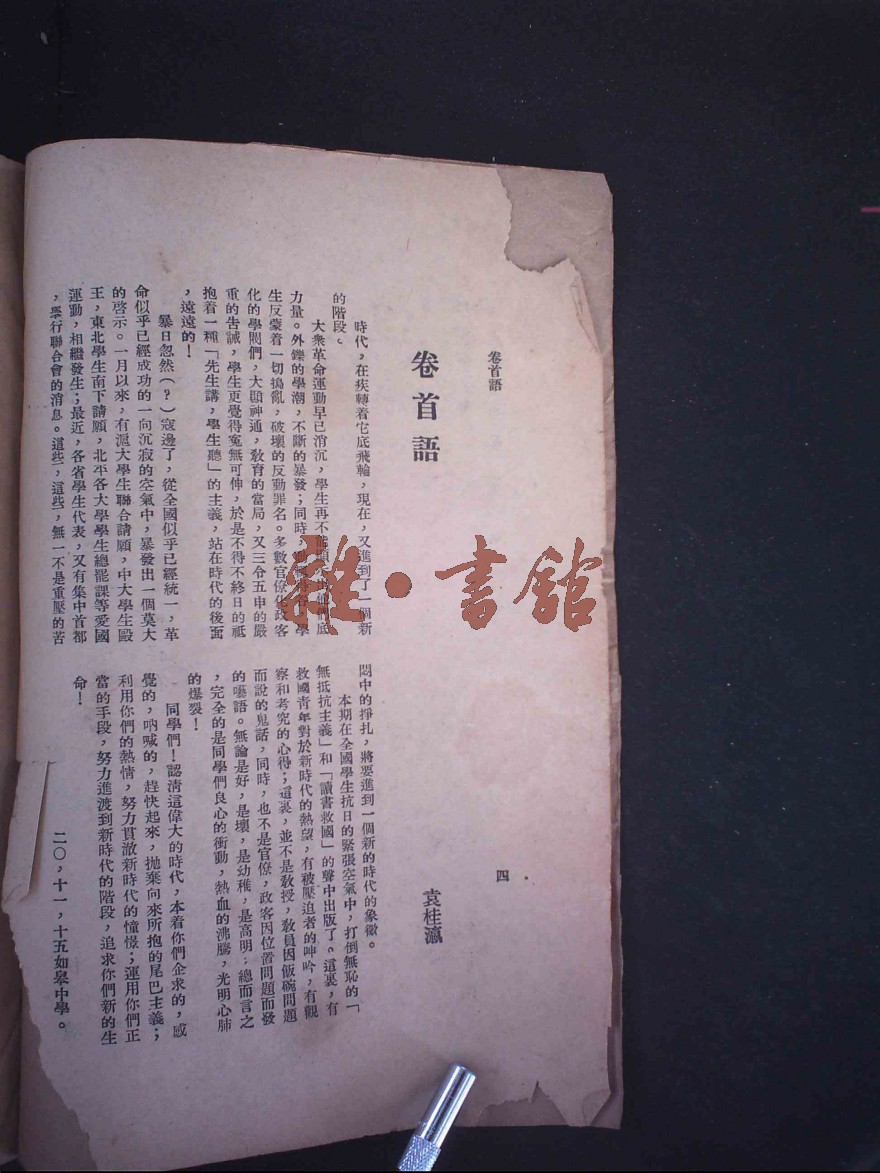 卷首語
四
卷首語
袁桂瀛
時代，在疾轉着它底飛輪，現在，又進到了一個新
的階段。
大衆革命運動早已消沉，學生再不能
底
力量。外鑠的學潮，不斷的暴發；同時，
學
生反蒙着一切搗亂，破壞的反動罪名。多數官僚化政客
化的學閥們，大顯神通，敎育的當局，又三令五申的嚴
重的告誡，學生更覺得寃無可伸，於是不得不終日的祗
抱着一種「先生講，學生聽」的主義，站在時代的後面
，遠遠的！
暴日忽然(？)寇邊了，從全國似乎已經統一，革
命似乎已經成功的一向沉寂的空氣中，暴發出一個莫大
的啓示。一月以來，有滬大學生聯合請願，中大學生毆
王，東北學生南下請願，北平各大學學生總罷課等愛國
運動，相繼發生；最近，各省學生代表，又有集中首都
，舉行聯合會的消息。這些，這些，無一不是重壓的苦
悶中的掙扎，將要進到一個新的時代的象徵。
本期在全國學生抗日的緊張空氣中，打倒無恥的「
無抵抗主義」和「讀書救國」的聲中出版了。這裏，有
救國靑年對於新時代的熱望，有被壓迫者的呻吟，有觀
察和考究的心得；這裏，並不是敎授，敎員因飯碗問題
而說的鬼話，同時，也不是官僚，政客因位置問題而發
的囈語。無論是好，是壞，是幼稚，是高明；總而言之
，完全的是同學們良心的衝動，熱血的沸騰，光明心肺
的爆裂！
同學們！認清這偉大的時代，本着你們企求的，感
覺的，吶喊的，趕快起來，拋棄向來所抱的尾巴主義；
利用你們的熱情，努力貫澈新時代的憧憬；運用你們正
當的手段，努力進渡到新時代的階段，追求你們新的生
命！
二〇，十一，十五如皋中學。
雜·書館